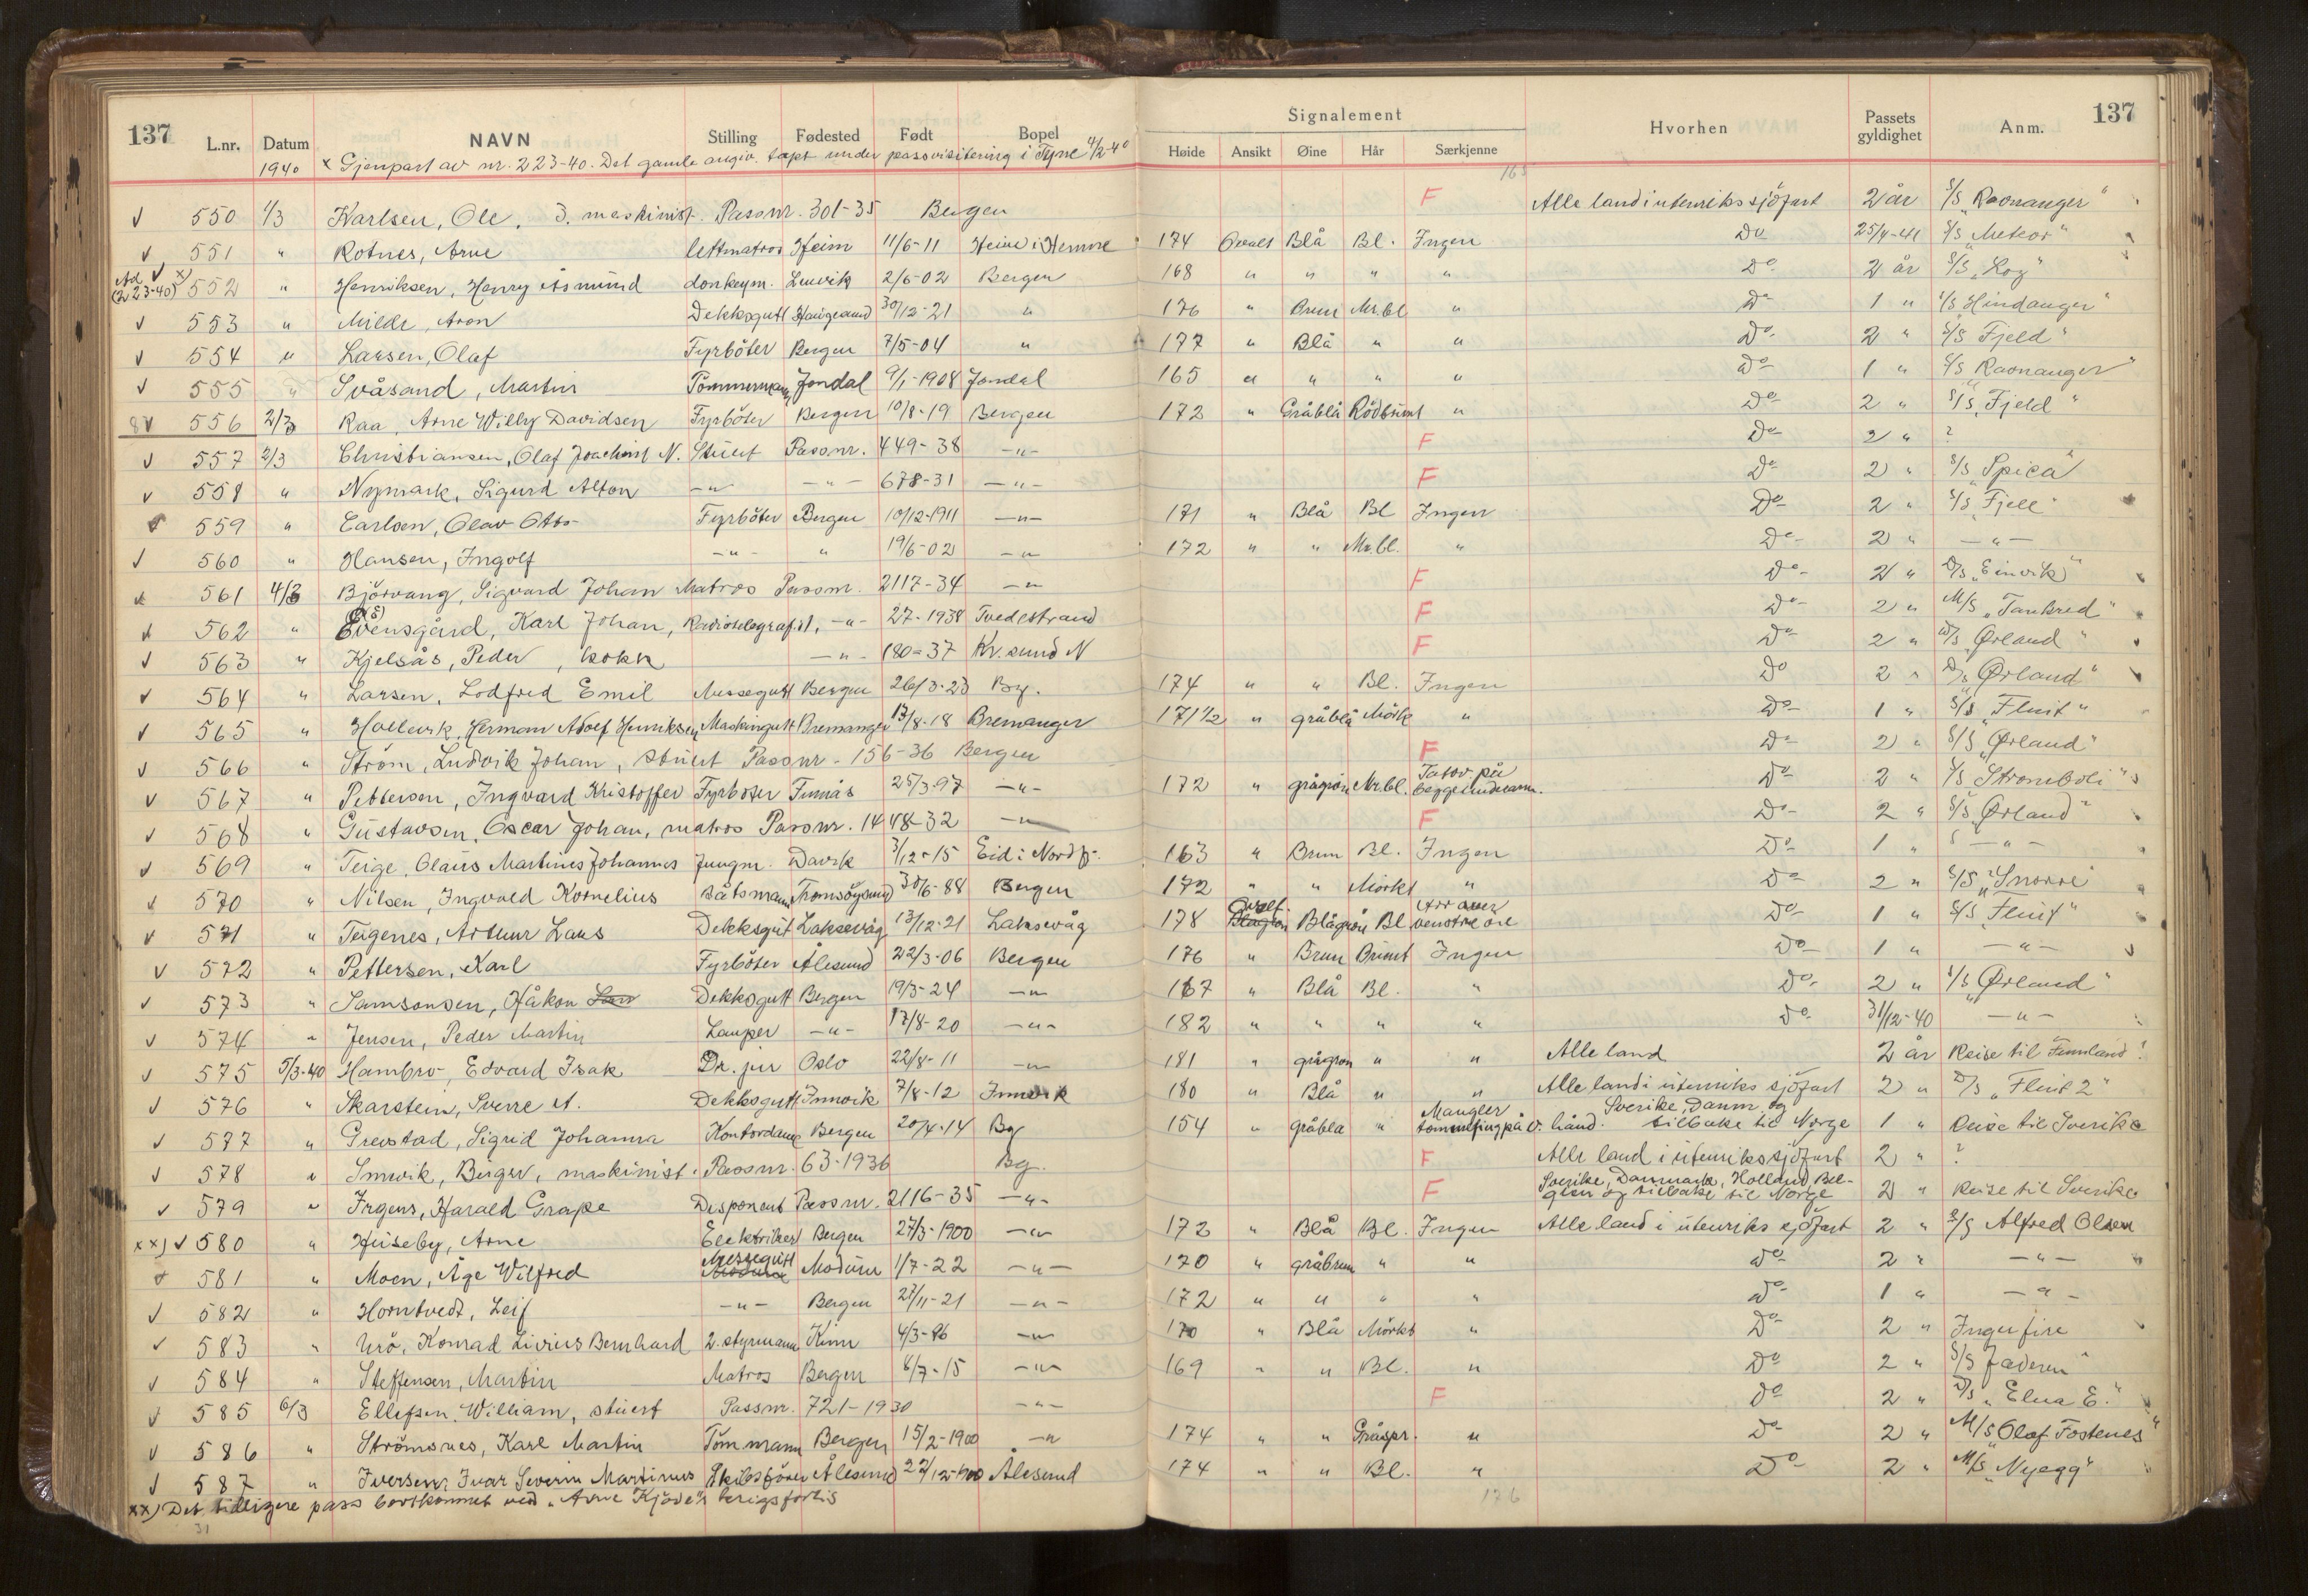 137 L.nr. Datum NAVN Stilling Fødested Født Bopel Signalement Høide Ansikt Øine Hår Særkjenne Hvorhen Passets gyldighet Anm. 137
1940 x Gjenpart av nr. 223-40. Det gamle angiv. tapt under passvisitering i Tyne 4/2-40
165
√ 550 1/3 Karlsen, Ole, 3. maskinist. Passnr. 301-35 Bergen F Alle land i utenriks sjöfart 2 år S/S „Raonanger"
√ 551 " Rotnes, Arne lettmatros Heim 11/6-11 Heim i Hemne 174 Ovalt Blå Bl. Ingen Do 25/4-41 S/S „Meteor"
√ x) (223-40) 552 " Henriksen, Henry Åsmund donkeym. Lenvik 2/6-02 Bergen 168 " " " " Do 2 år S/S „Log"
√ 553 " Milde, Aron Dekksgutt Haugesund 30/12-21 " 176 " Brun Mr.bl " Do 1 " S/S Hindanger"
√ 554 " Larsen, Olaf Fyrböter Bergen 7/5-04 " 177 " Blå " " Do 2 " S/S Fjeld"
√ 555 " Svåsand, Martin Tömmermann Jondal 9/1-1908 Jondal 165 " " " " Do 1 " S/S „Raonanger"
8√ 556 2/3 Raa, Arne Willy Davidsen Fyrböter Bergen 10/8-19 Bergen 172 " Gråblå Rödbrunt " Do 2 " S/S „Fjeld"
√ 557 2/3 Christiansen, Olaf Joachim N. Stuert Passnr. 449-38 -"- F Do 2 " ?
√ 558 " Nymark, Sigurd Alton -"- -"- 678-31 -"- F Do 2 " S/S „Spica"
√ 559 " Carlsen, Olav Otto Fyrböter Bergen 10/12-1911 -"- 171 " Blå Bl Ingen Do 2 " S/S „Fjell"
√ 560 " Hansen, Ingolf -"- " 19/6-02 -"- 172 " " Mr.bl. " Do 2 " -"-
√ 561 4/3 Björvang, Sigvard Johan Matros Passnr. 2117-34 -"- F Do 2 " D/S „Einvik"
√ 562 " Evensgård, Karl Johan, Radiotelegrafist, -"- 27-1938 Tvedestrand F Do 2 " M/S „Tankred"
√ 563 " Kjelsås, Peder, kokk -"- 180-37 Kr.sund N F Do 2 " D/S „Ørland"
√ 564 " Larsen, Lodfred Emil Messegutt Bergen 26/3-23 Bg. 174 " " Bl. Ingen Do 2 " D/S „Ørland"
√ 565 " Hollevik, Herman Adolf Henriksen Maskingutt Bremanger 13/8-18 Bremanger 171 1/2 " gråblå Mörk " Do 1 " S/S „Fluit"
√ 566 " Ström, Ludvik Johan, stuert Passnr. 156-36 Bergen F Do 2 " S/S „Ørland"
√ 567 " Pettersen, Ingvard Kristoffer Fyrböter Finnås 25/3-97 -"- 172 " grågrön Mr.bl. Tatov. på begge underarm. Do 2 " S/S „Stromboli"
√ 568 " Gustavsen, Oscar Johan, matros Passnr. 1448-32 -"- F Do 2 " S/S „Ørland"
√ 569 " Teige, Olaus Martinus Johannes Jungm. Davik 3/12-15 Eid i Nordfj. 163 " Brun Bl. Ingen Do 1 " -"-
√ 570 " Nilsen, Ingvald Kornelius Båtsmann Tromsöysund 30/6-88 Bergen 172 " " Mörkt " Do 2 " S/S „Snorre"
√ 571 " Teigenes, Arthur Laus Dekksgut Laksevåg 13/12-21 Laksevåg 178 Ovalt Blågrön Bl Arr över venstre öre Do 1 " S/S „Fluit"
√ 572 " Pettersen, Karl Fyrböter Ålesund 22/3-06 Bergen 176 " Brun Brunt Ingen Do 1 " -"-
√ 573 " Samsonsen, Håkon Dekksgutt Bergen 19/3-24 -"- 167 " Blå Bl. " Do 2 " S/S „Ørland"
√ 574 " Jensen, Peder Martin Lamper -"- 17/8-20 -"- 182 " " " " Do 31/12-40 -"-
√ 575 5/3-40 Hambro, Edvard Isak Dr. jur Oslo 22/8-11 -"- 181 " grågrön " " Alle land 2 år Reise til Finnland!
√ 576 " Skarstein, Sverre A. Dekksgutt Innvik 7/8-12 Innvik 180 " Blå " " Alle land i utenriks sjöfart 2 " D/S „Fluit 2"
√ 577 " Grevstad, Sigrid Johanna Kontordame Bergen 20/4-14 Bg 154 " gråblå " Mangler tommelfing på v. hånd. Sverike, Danm. og tilbake til Norge 1 " Reise til Sverike
√ 578 " Smevik, Birger, maskinist. Passnr. 63-1936 Bg. F Alle land i utenriks sjöfart 2 " ?
√ 579 " Irgens, Harald Grape Disponent Passnr. 2116-35 -"- F Sverike, Danmark, Holland, Belgien og tilbake til Norge 2 " Reise til Sverike
xx) √ 580 " Huseby, Arne Elektriker Bergen 27/3-1900 -"- 172 " Blå Bl. Ingen Alle land i utenriks sjöfart 2 " S/S Alfred Olsen
√ 581 " Moen, Åge Wilfred Messegutt Modum 1/7-22 -"- 170 " gråbrun " " Do 2 " -"-
√ 582 " Horntvedt, Leif -"- Bergen 27/11-21 -"- 172 " " " " Do 1 " -"-
√ 583 " Urö, Konrad Livius Bernhard 2. styrmann Kinn 4/3-96 -"- 170 " Blå Mörkt " Do 2 " Ingerfire
√ 584 " Steffensen, Martin Matros Bergen 8/7-15 -"- 169 " " Bl. " Do 2 " S/S Jæderen"
√ 585 6/3 Ellefsen, William, stuert Passnr. 721-1930 -"- F Do 2 " D/S „Elna E."
√ 586 " Strömsnes, Karl Martin Töm.mann Bergen 15/2-1900 -"- 174 " " Gråspr. " Do 2 " M/S „Olaf Fostenes"
√ 587 " Iversen, Ivar Severin Martinus Skibsförer Ålesund 22/12-1900 Ålesund 174 " " Bl. " Do 2 " M/S „Nyegg"
xx) Det tidligere pass bortkommet ved „Arne Kjöde"s krigsforlis
31 176